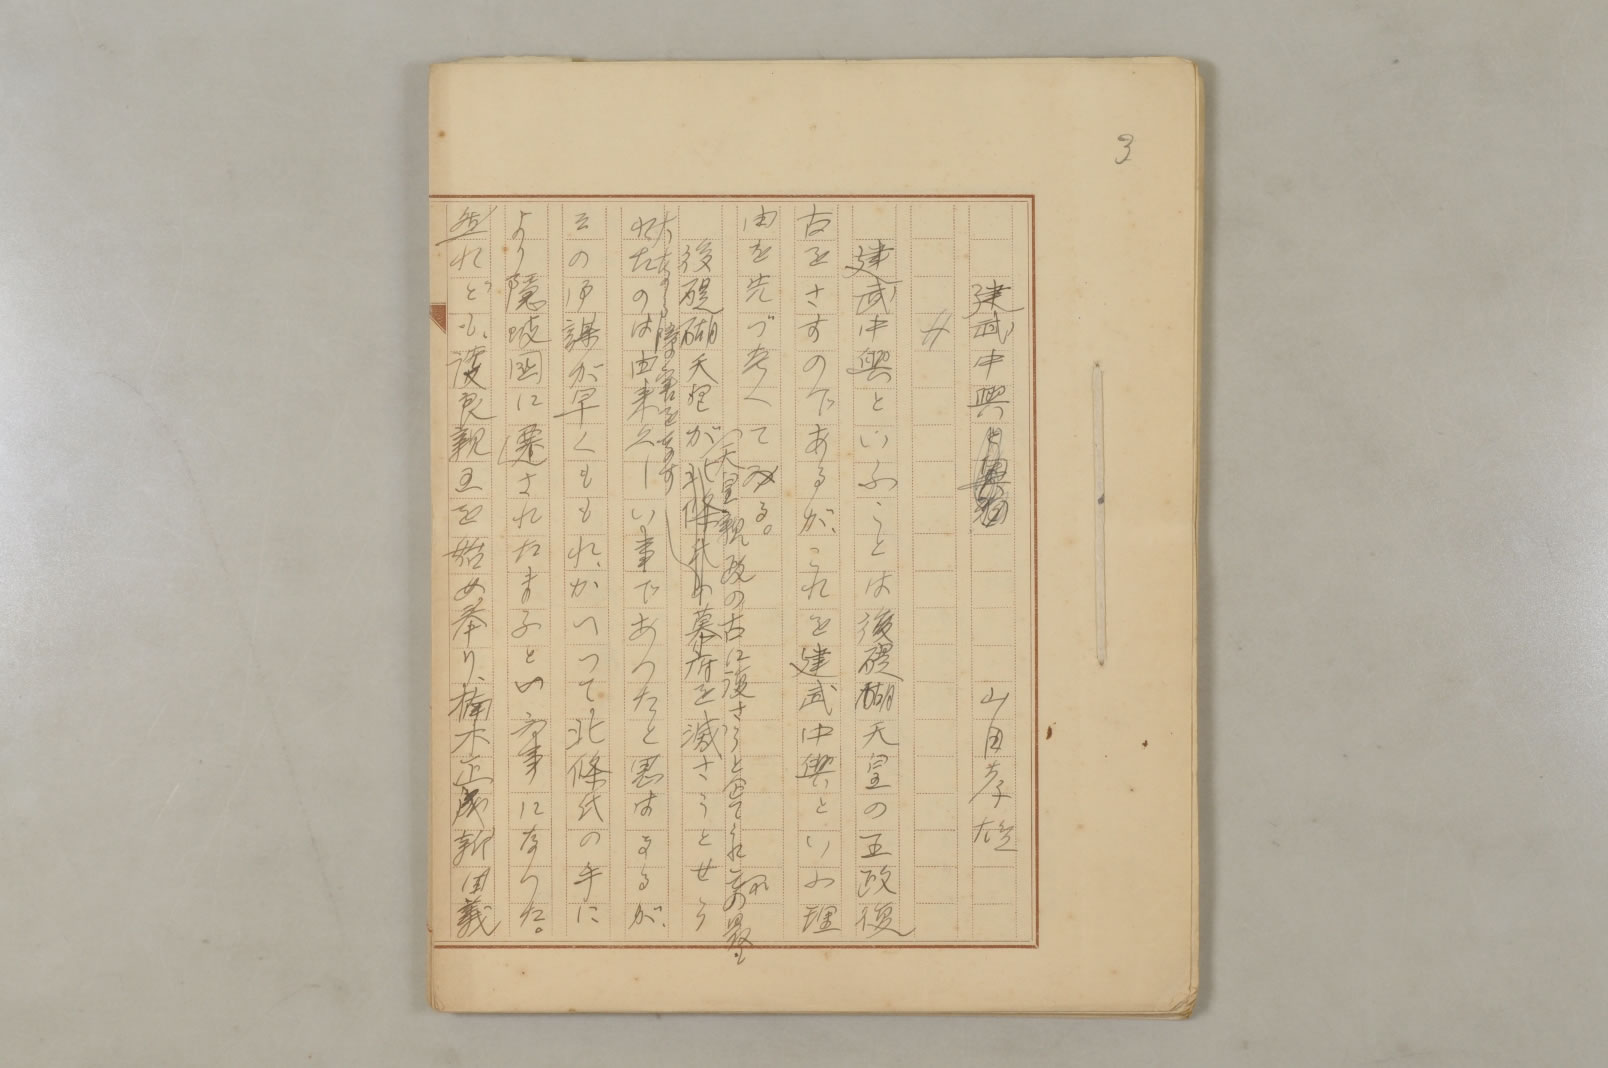 3
建武中興
山田孝雄
建武中興といふことは後醍醐天皇の王政復
古をさすのであるが、これを建武中興といふ理
由を先づ考へてみる。
天皇親政の古に復さうと
後醍醐天皇が北條氏の幕府を滅さうとせら
大なる障害をなす
れたのは由来久しい事であつたと思はるるが、
その御謀が早くももれ、かへつて北條氏の手に
より隠岐国に遷されたまふといふ事になつた。
然れども、護良親王を始め奉り、楠木正成新田義